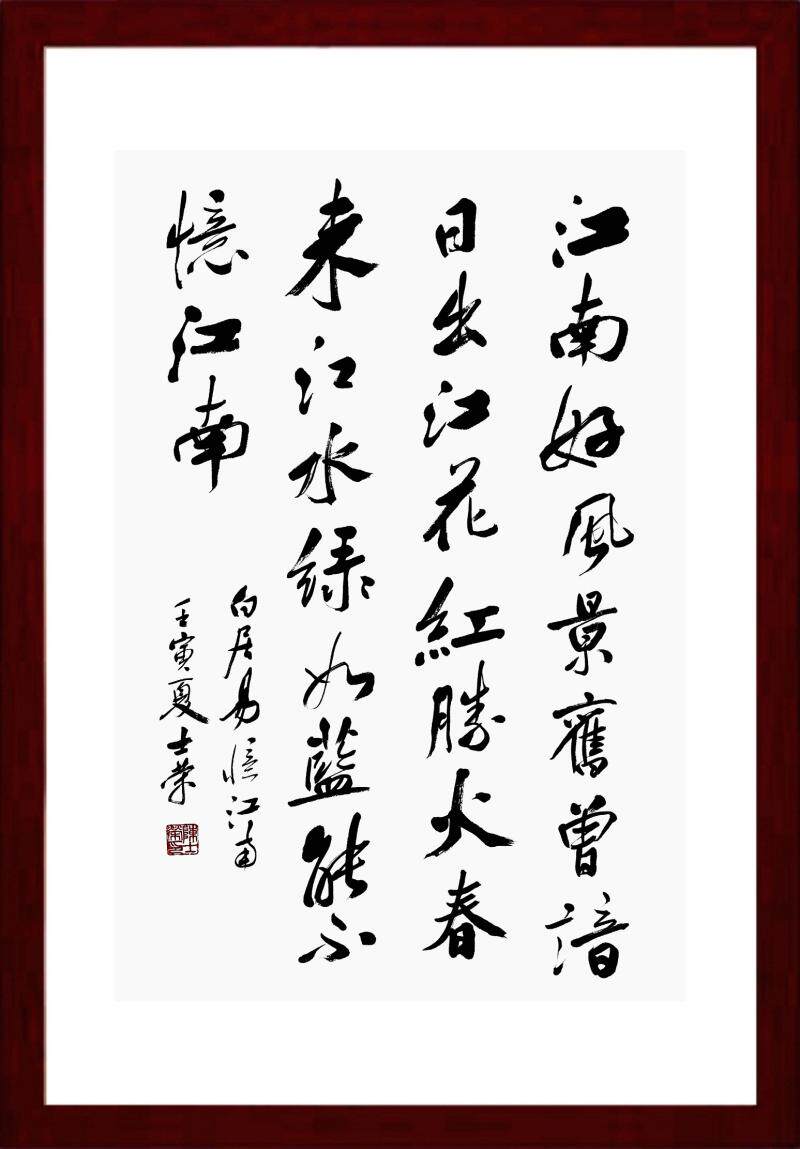 江南好風景舊曾諳
日出江花紅勝火春
来江水綠如藍能不
憶江南
白居易憶江南
壬寅夏士荣